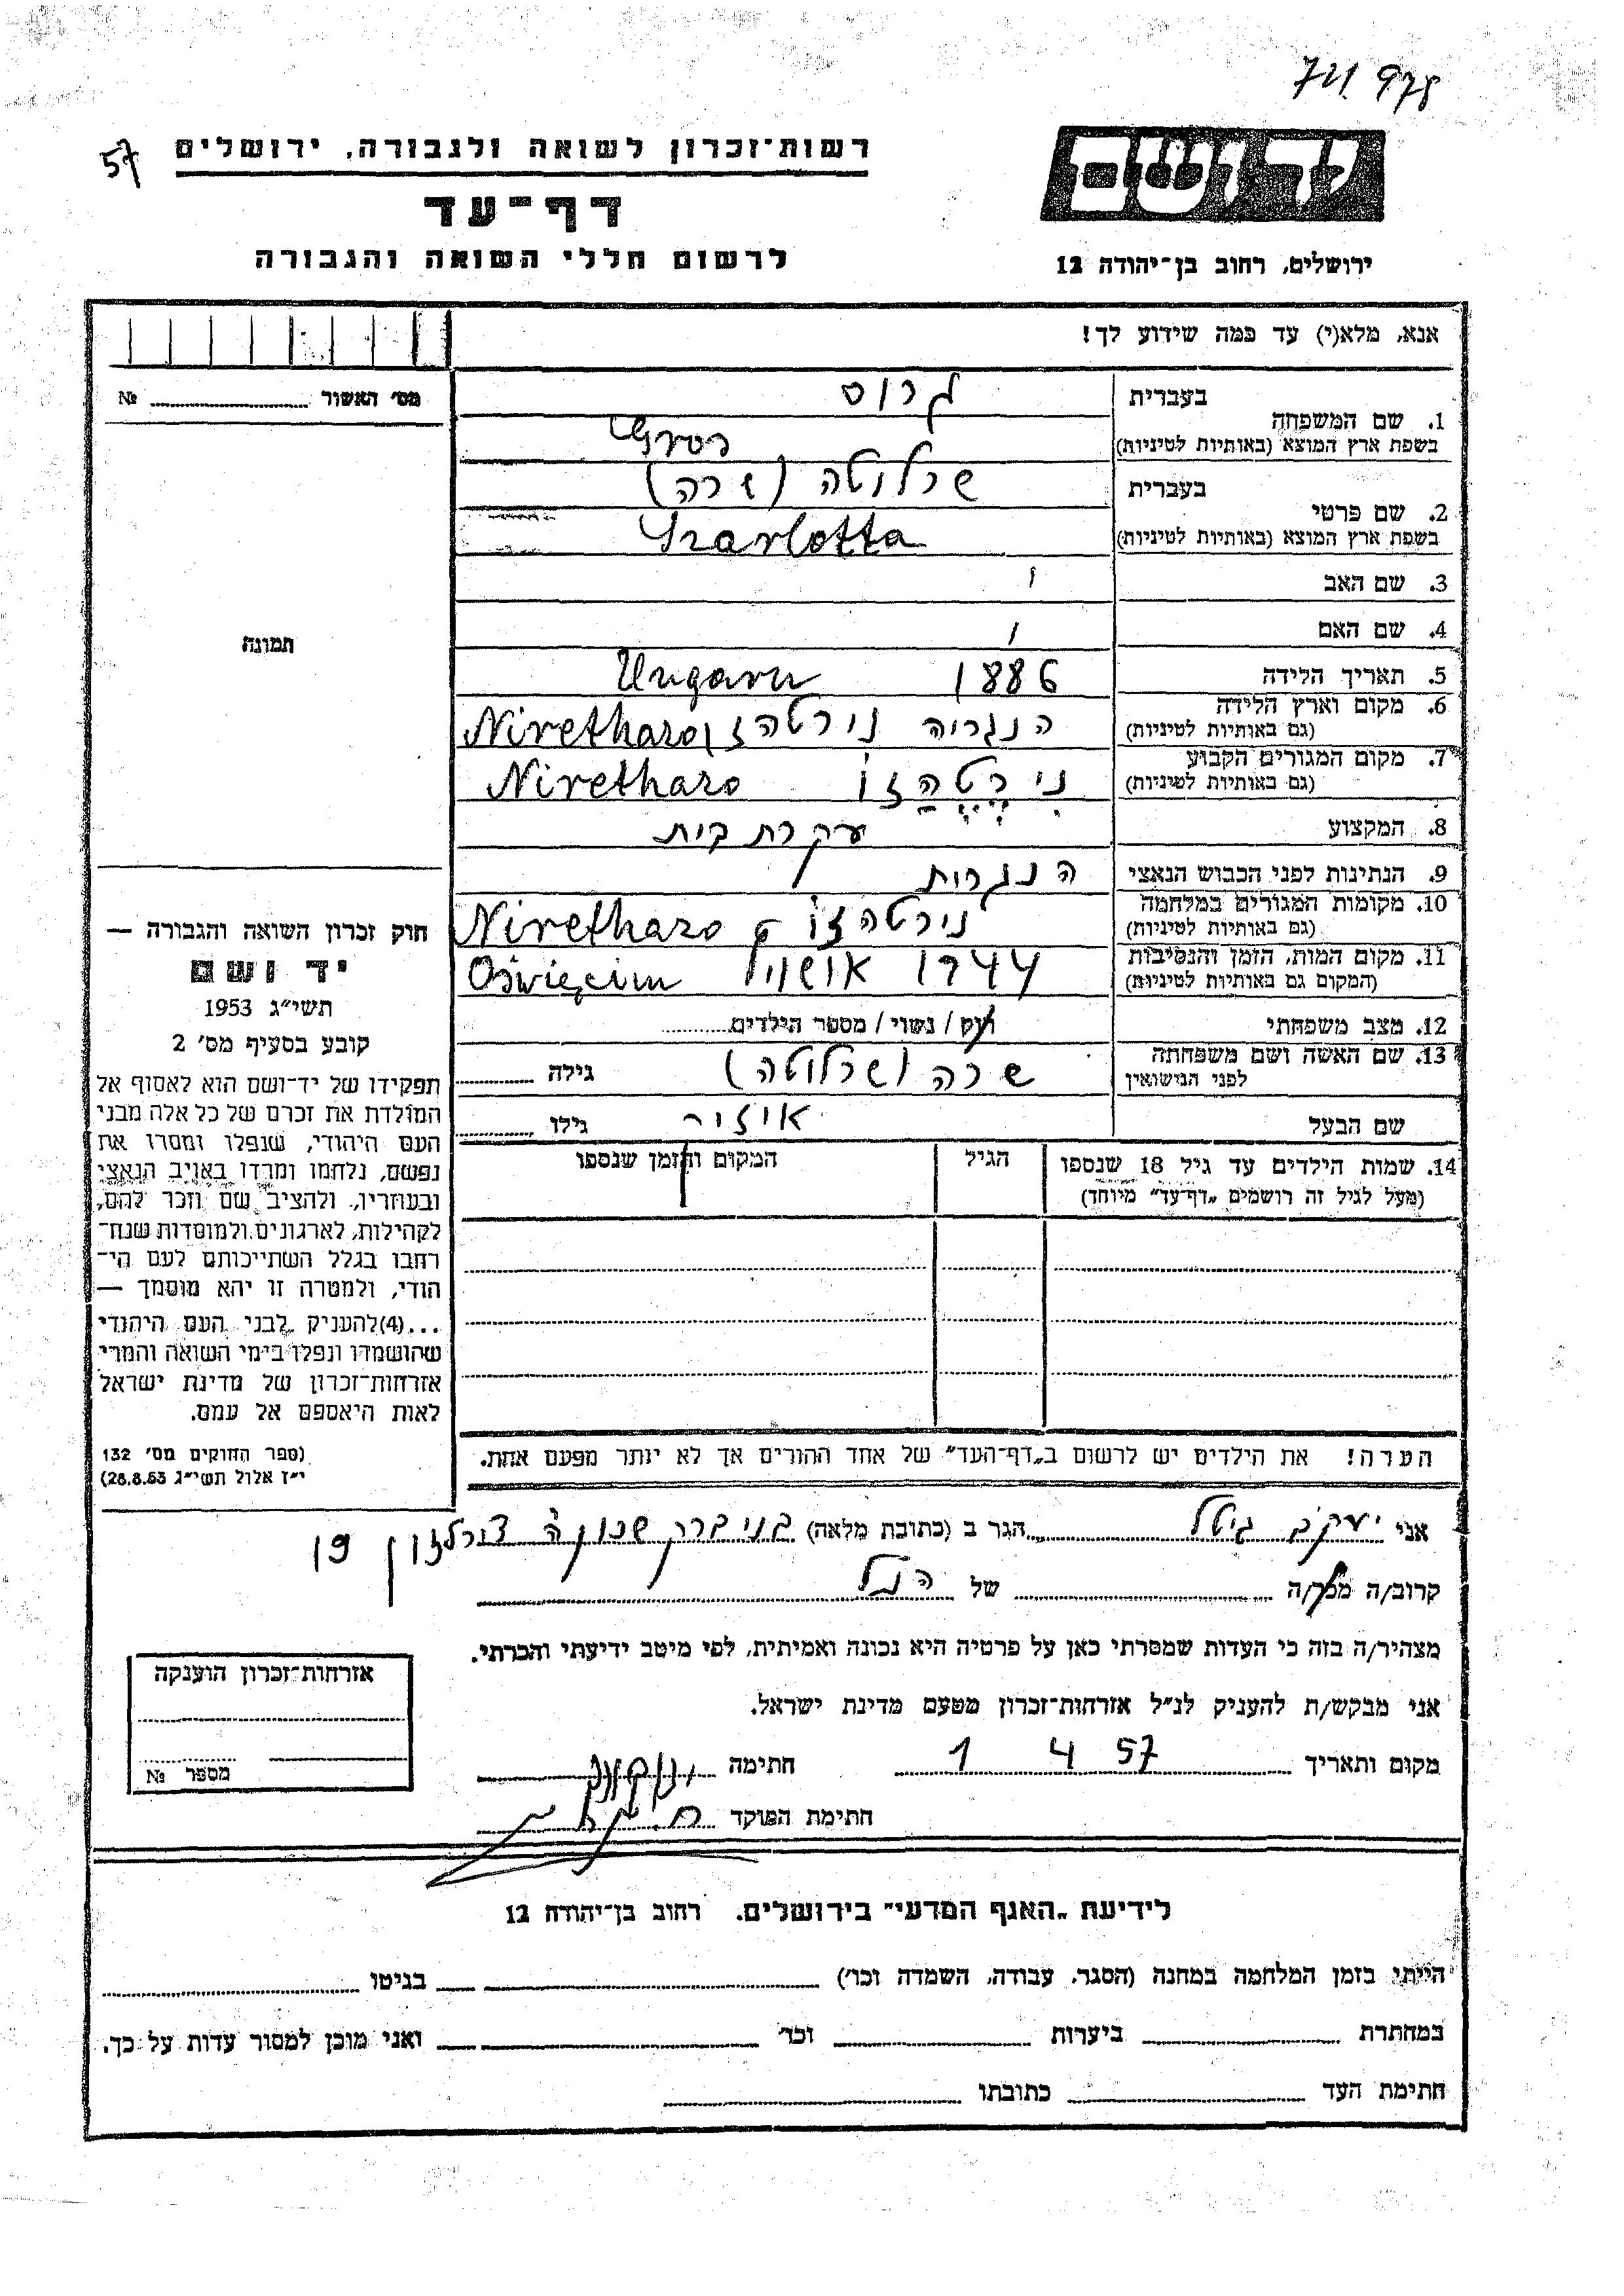 978
57
רשות־זכרון לשואה ולגבורה, ירושלים
דף־עד
לרשום חללי השואה והגבורה
ידושם
ירושלים, רחוב בן־יהודה 12
אנא, מלא(י) עד כמה שידוע לך!
מס׳ האשור № 
תמונה
חוק זכרון השואה והגבורה —
יד ושם
תשי״ג 1953
קובע בסעיף מס׳ 2
תפקידו של יד־ושם הוא לאסוף אל
המולדת את זכרם של כל אלה מבני
העם היהודי, שנפלו ומסרו את
נפשם, נלחמו ומרדו באויב הנאצי
ובעוזריו, ולהציב שם וזכר להם,
לקהילות, לארגונים ולמוסדות שנח־
רחבו בגלל השתייכותם לעם הי־
הודי, ולמטרה זו יהא מוסמך —
...(4)להעניק לבני העם היהודי
שהושמדו ונפלו בימי השואה והמרי
אזרחות־זכרון של מדינת ישראל
לאות היאספם אל עמם.
(ספר החוקים מס׳ 132
י״ז אלול תשי״ג 28.8.53)
בעברית גרוס
1. שם המשפחה
בשפת ארץ המוצא (באותיות לטיניות)
בעברית שרלוטה (שרה)
2. שם פרטי
בשפת ארץ המוצא (באותיות לטיניות) Szarlotta
3. שם האב
4. שם האם
5. תאריך הלידה 1886 Ungarn
6. מקום וארץ הלידה הנגריה נירטהזו Nirethazo
(גם באותיות לטיניות)
7. מקום המגורים הקבוע נירטהזו Nirethazo
(גם באותיות לטיניות)
8. המקצוע עקרת בית
9. הנתינות לפני הכבוש הנאצי הנגרית
10. מקומות המגורים במלחמה נירטהזו Nirethazo
(גם באותיות לטיניות)
11. מקום המות, הזמן והנסיבות 1944 Oświęcim
(המקום גם באותיות לטיניות)
12. מצב משפחתי רוק / נשוי / מספר הילדים
13. שם האשה ושם משפחתה שרה (שרלוטה) גילה
לפני הנישואין
שם הבעל גילו
14. שמות הילדים עד גיל 18 שנספו הגיל המקום והזמן שנספו
(מעל לגיל זה רושמים „דף־עד״ מיוחד)
הערה! את הילדים יש לרשום ב„דף־העד״ של אחד ההורים אך לא יותר מפעם אחת.
אני יעקב גיטל הגר ב (כתובת מלאה) בני ברק שכונה 19
קרוב/ה מכר/ה של הנ״ל
מצהיר/ה בזה כי העדות שמסרתי כאן על פרטיה היא נכונה ואמיתית, לפי מיטב ידיעתי והכרתי.
אני מבקש/ת להעניק לנ״ל אזרחות־זכרון מטעם מדינת ישראל.
מקום ותאריך 1 4 57 חתימה
חתימת הפוקד
אזרחות־זכרון הוענקה
מספר №
לידיעת „האגף המדעי״ בירושלים, רחוב בן־יהודה 12
הייתי בזמן המלחמה במחנה (הסגר, עבודה, השמדה וכר׳) בגיטו
במחתרת ביערות וכר׳ ואני מוכן למסור עדות על כך.
חתימת העד כתובתו